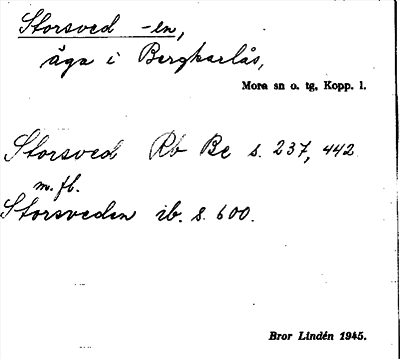 Storsved -en,
äga i Bergkarlås,
Mora sn o. tg, Kopp. l.
Storsved Rb Be s. 237, 442
m. fl.
Storsveden ib. s. 600.
Bror Lindén 1945.